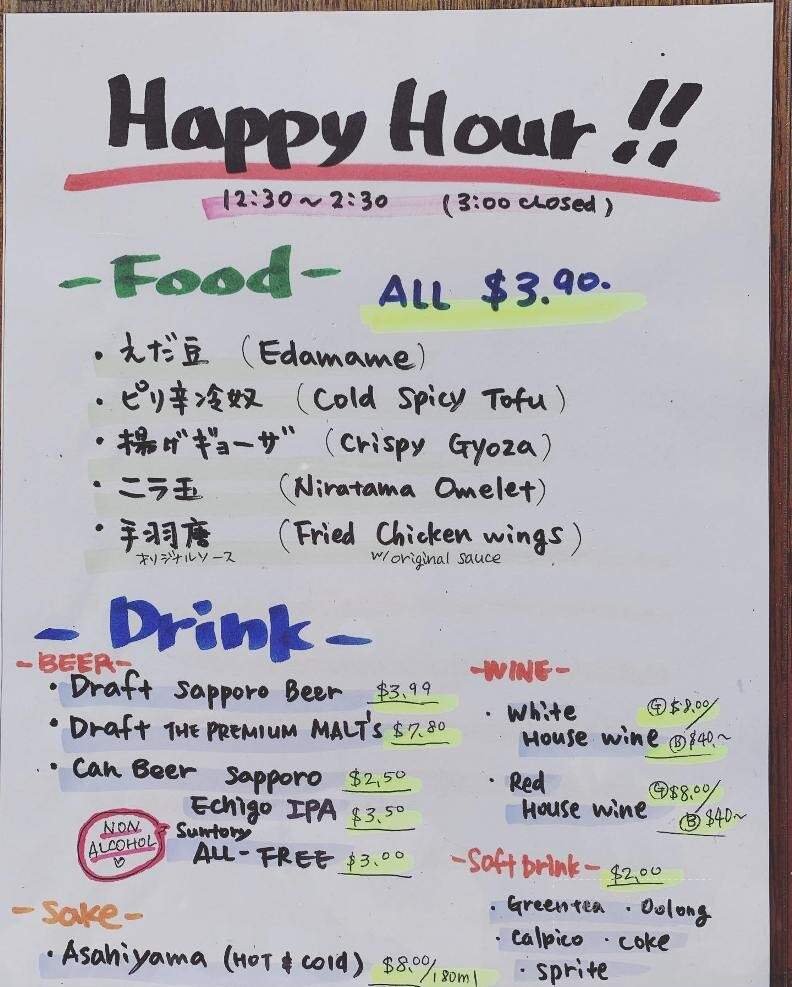 Happy Hour!!
12:30~2:30 (3:00 closed)
-Food- ALL $3.90.
・えだ豆 (Edamame)
・ピリ辛冷奴 (Cold Spicy Tofu)
・揚げギョーザ (Crispy Gyoza)
・ニラ玉 (Niratama Omelet)
・手羽唐 (Fried Chicken wings)
オリジナルソース w/original sauce
- Drink -
-BEER-
・Draft Sapporo Beer $3.99
・Draft THE PREMIUM MALT's $7.80
・Can Beer Sapporo $2.50
Echigo IPA $3.50
NON ALCOHOL♡ Suntory
ALL-FREE $3.00
-Sake-
・Asahiyama (HOT & Cold) $8.00/180ml
-WINE-
・White Ⓖ$8.00/
House wine Ⓑ$40~
・Red Ⓖ$8.00/
House wine Ⓑ$40~
-Soft Drink- $2.00
・Greentea ・Oolong
・Calpico ・coke
・sprite